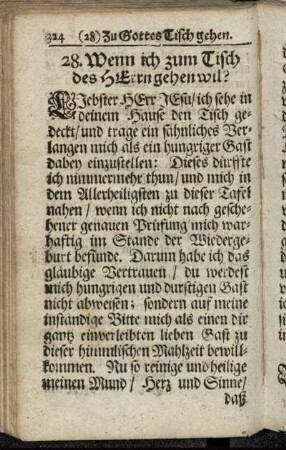 324 (28) Zu Gottes Tisch gehen.
28. Wenn ich zum Tisch
des HErrn gehen wil?
LJebster HErr JEsu/ ich sehe in
deinem Hause den Tisch ge-
deckt/ und trage ein sähnliches Ver-
langen mich als ein hungriger Gast
dabey einzustellen: Dieses dürffte
ich nimmermehr thun/ und mich in
dem Allerheiligsten zu dieser Tafel
nahen/ wenn ich nicht nach gesche-
hener genauen Prüfung mich war-
hafftig im Stande der Wiederge-
burt befünde. Darum habe ich das
gläubige Vertrauen/ du werdest
mich hungrigen und durstigen Gast
nicht abweisen; sondern auf meine
inständige Bitte mich als einen dir
gantz einverleibten lieben Gast zu
dieser himmlischen Mahlzeit bewill-
kommen. Nu so reinige und heilige
meinen Mund/ Hertz und Sinne/
daß